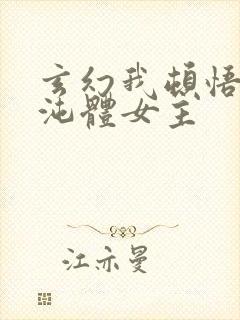 玄幻我頓悟
沌體女主
江亦曼